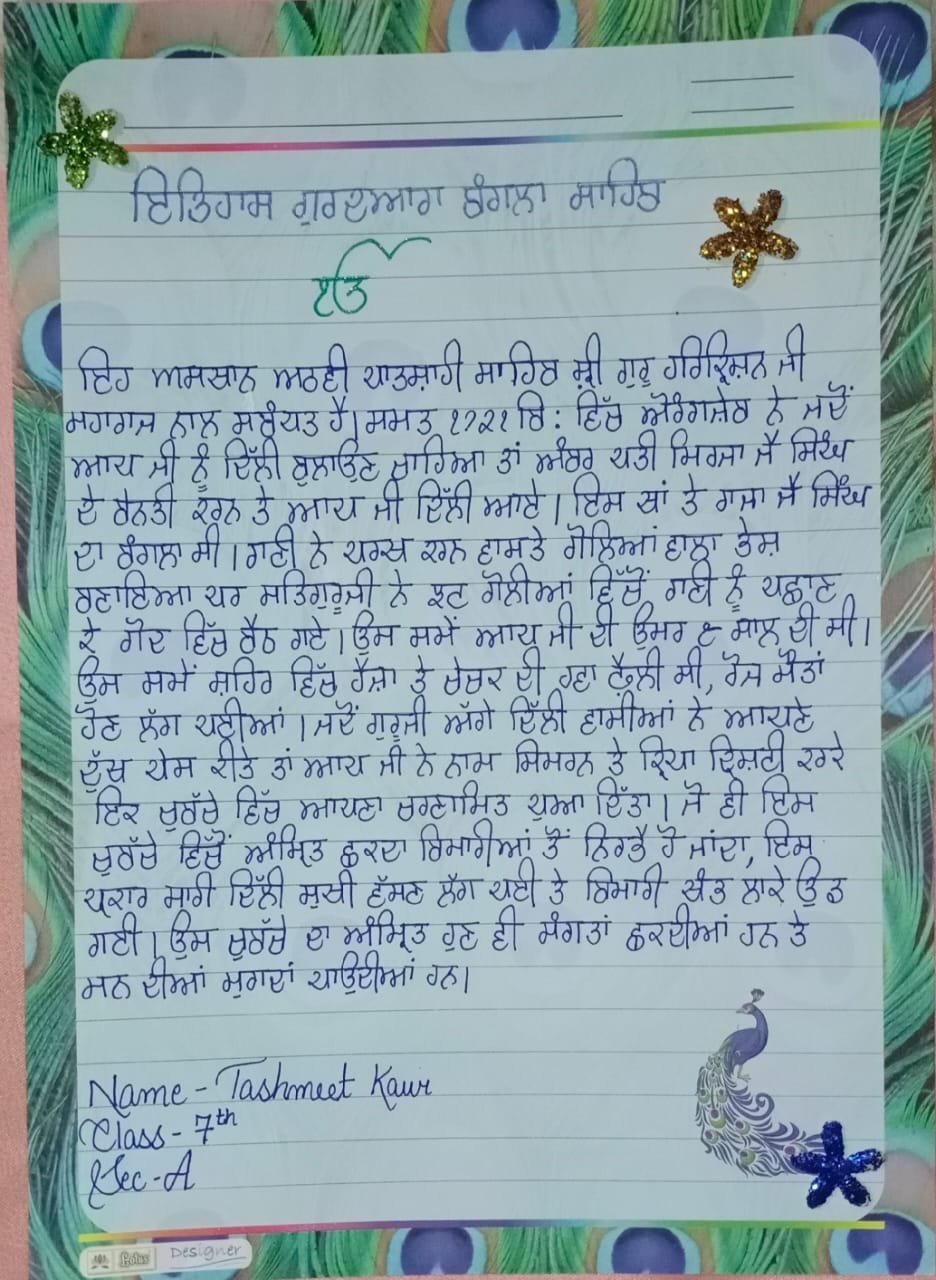 ਇਤਿਹਾਸ ਗੁਰਦੁਆਰਾ ਬੰਗਲਾ ਸਾਹਿਬ
ੴ
ਇਹ ਅਸਥਾਨ ਅਠਵੀ ਪਾਤਸ਼ਾਹੀ ਸਾਹਿਬ ਸ਼੍ਰੀ ਗੁਰੂ ਹਰਿਕ੍ਰਿਸ਼ਨ ਜੀ
ਮਹਾਰਾਜ ਨਾਲ ਸਬੰਧਤ ਹੈ। ਸਮਤ ੧੭੨੧ ਬਿ: ਵਿੱਚ ਔਰੰਗਜ਼ੇਬ ਨੇ ਜਦੋਂ
ਆਪ ਜੀ ਨੂੰ ਦਿੱਲੀ ਬੁਲਾਉਣ ਚਾਹਿਆ ਤਾਂ ਅੰਬਰ ਪਤੀ ਮਿਰਜਾ ਜੈ ਸਿੰਘ
ਦੇ ਬੇਨਤੀ ਕਰਨ ਤੇ ਆਪ ਜੀ ਦਿੱਲੀ ਆਏ। ਇਸ ਥਾਂ ਤੇ ਰਾਜਾ ਜੈ ਸਿੰਘ
ਦਾ ਬੰਗਲਾ ਸੀ। ਰਾਣੀ ਨੇ ਪਰਖ ਕਰਨ ਵਾਸਤੇ ਗੋਲਿਆਂ ਵਾਲਾ ਭੇਸ਼
ਬਣਾਇਆ ਪਰ ਸਤਿਗੁਰੂਜੀ ਨੇ ਝਣ ਗੋਲੀਆਂ ਵਿੱਚੋਂ ਰਾਣੀ ਨੂੰ ਪਛਾਣ
ਕੇ ਗੋਦ ਵਿੱਚ ਬੈਠ ਗਏ। ਉਸ ਸਮੇਂ ਆਪ ਜੀ ਦੀ ਉਮਰ ੮ ਸਾਲ ਦੀ ਸੀ।
ਉਸ ਸਮੇਂ ਸ਼ਹਿਰ ਵਿੱਚ ਹੈਜ਼ਾ ਤੇ ਚੇਚਕ ਦੀ ਹਵਾ ਫੈਲੀ ਸੀ, ਰੋਜ ਮੌਤਾਂ
ਹੋਣ ਲੱਗ ਪਈਆਂ। ਜਦੋਂ ਗੁਰੂਜੀ ਅੱਗੇ ਦਿੱਲੀ ਵਾਸੀਆਂ ਨੇ ਆਪਣੇ
ਦੁੱਖ ਪੇਸ ਕੀਤੇ ਤਾਂ ਆਪ ਜੀ ਨੇ ਨਾਮ ਸਿਮਰਨ ਤੇ ਕ੍ਰਿਪਾ ਦ੍ਰਿਸ਼ਟੀ ਕਰਕੇ
ਇਕ ਚੁਬੱਚੇ ਵਿੱਚ ਆਪਣਾ ਚਰਣਾਮਿਤ ਪੁਆ ਦਿੱਤਾ। ਜੋ ਵੀ ਇਸ
ਚੁਬੱਚੇ ਵਿੱਚੋਂ ਅੰਮ੍ਰਿਤ ਛਕਦਾ ਬਿਮਾਰੀਆਂ ਤੋਂ ਨਿਰਭੈ ਹੋ ਜਾਂਦਾ, ਇਸ
ਪ੍ਰਕਾਰ ਸਾਰੀ ਦਿੱਲੀ ਸੁਖੀ ਵੱਸਣ ਲੱਗ ਪਈ ਤੇ ਬਿਮਾਰੀ ਖੰਭ ਲਾਕੇ ਉਡ
ਗਈ। ਉਸ ਚੁਬੱਚੇ ਦਾ ਅੰਮ੍ਰਿਤ ਹੁਣ ਵੀ ਸੰਗਤਾਂ ਛਕਦੀਆਂ ਹਨ ਤੇ
ਮਨ ਦੀਆਂ ਮੁਰਾਦਾਂ ਪਾਉਦੀਆਂ ਹਨ।
Name - Tashmeet Kaur
Class - 7th
Sec - A
Lotus Designer